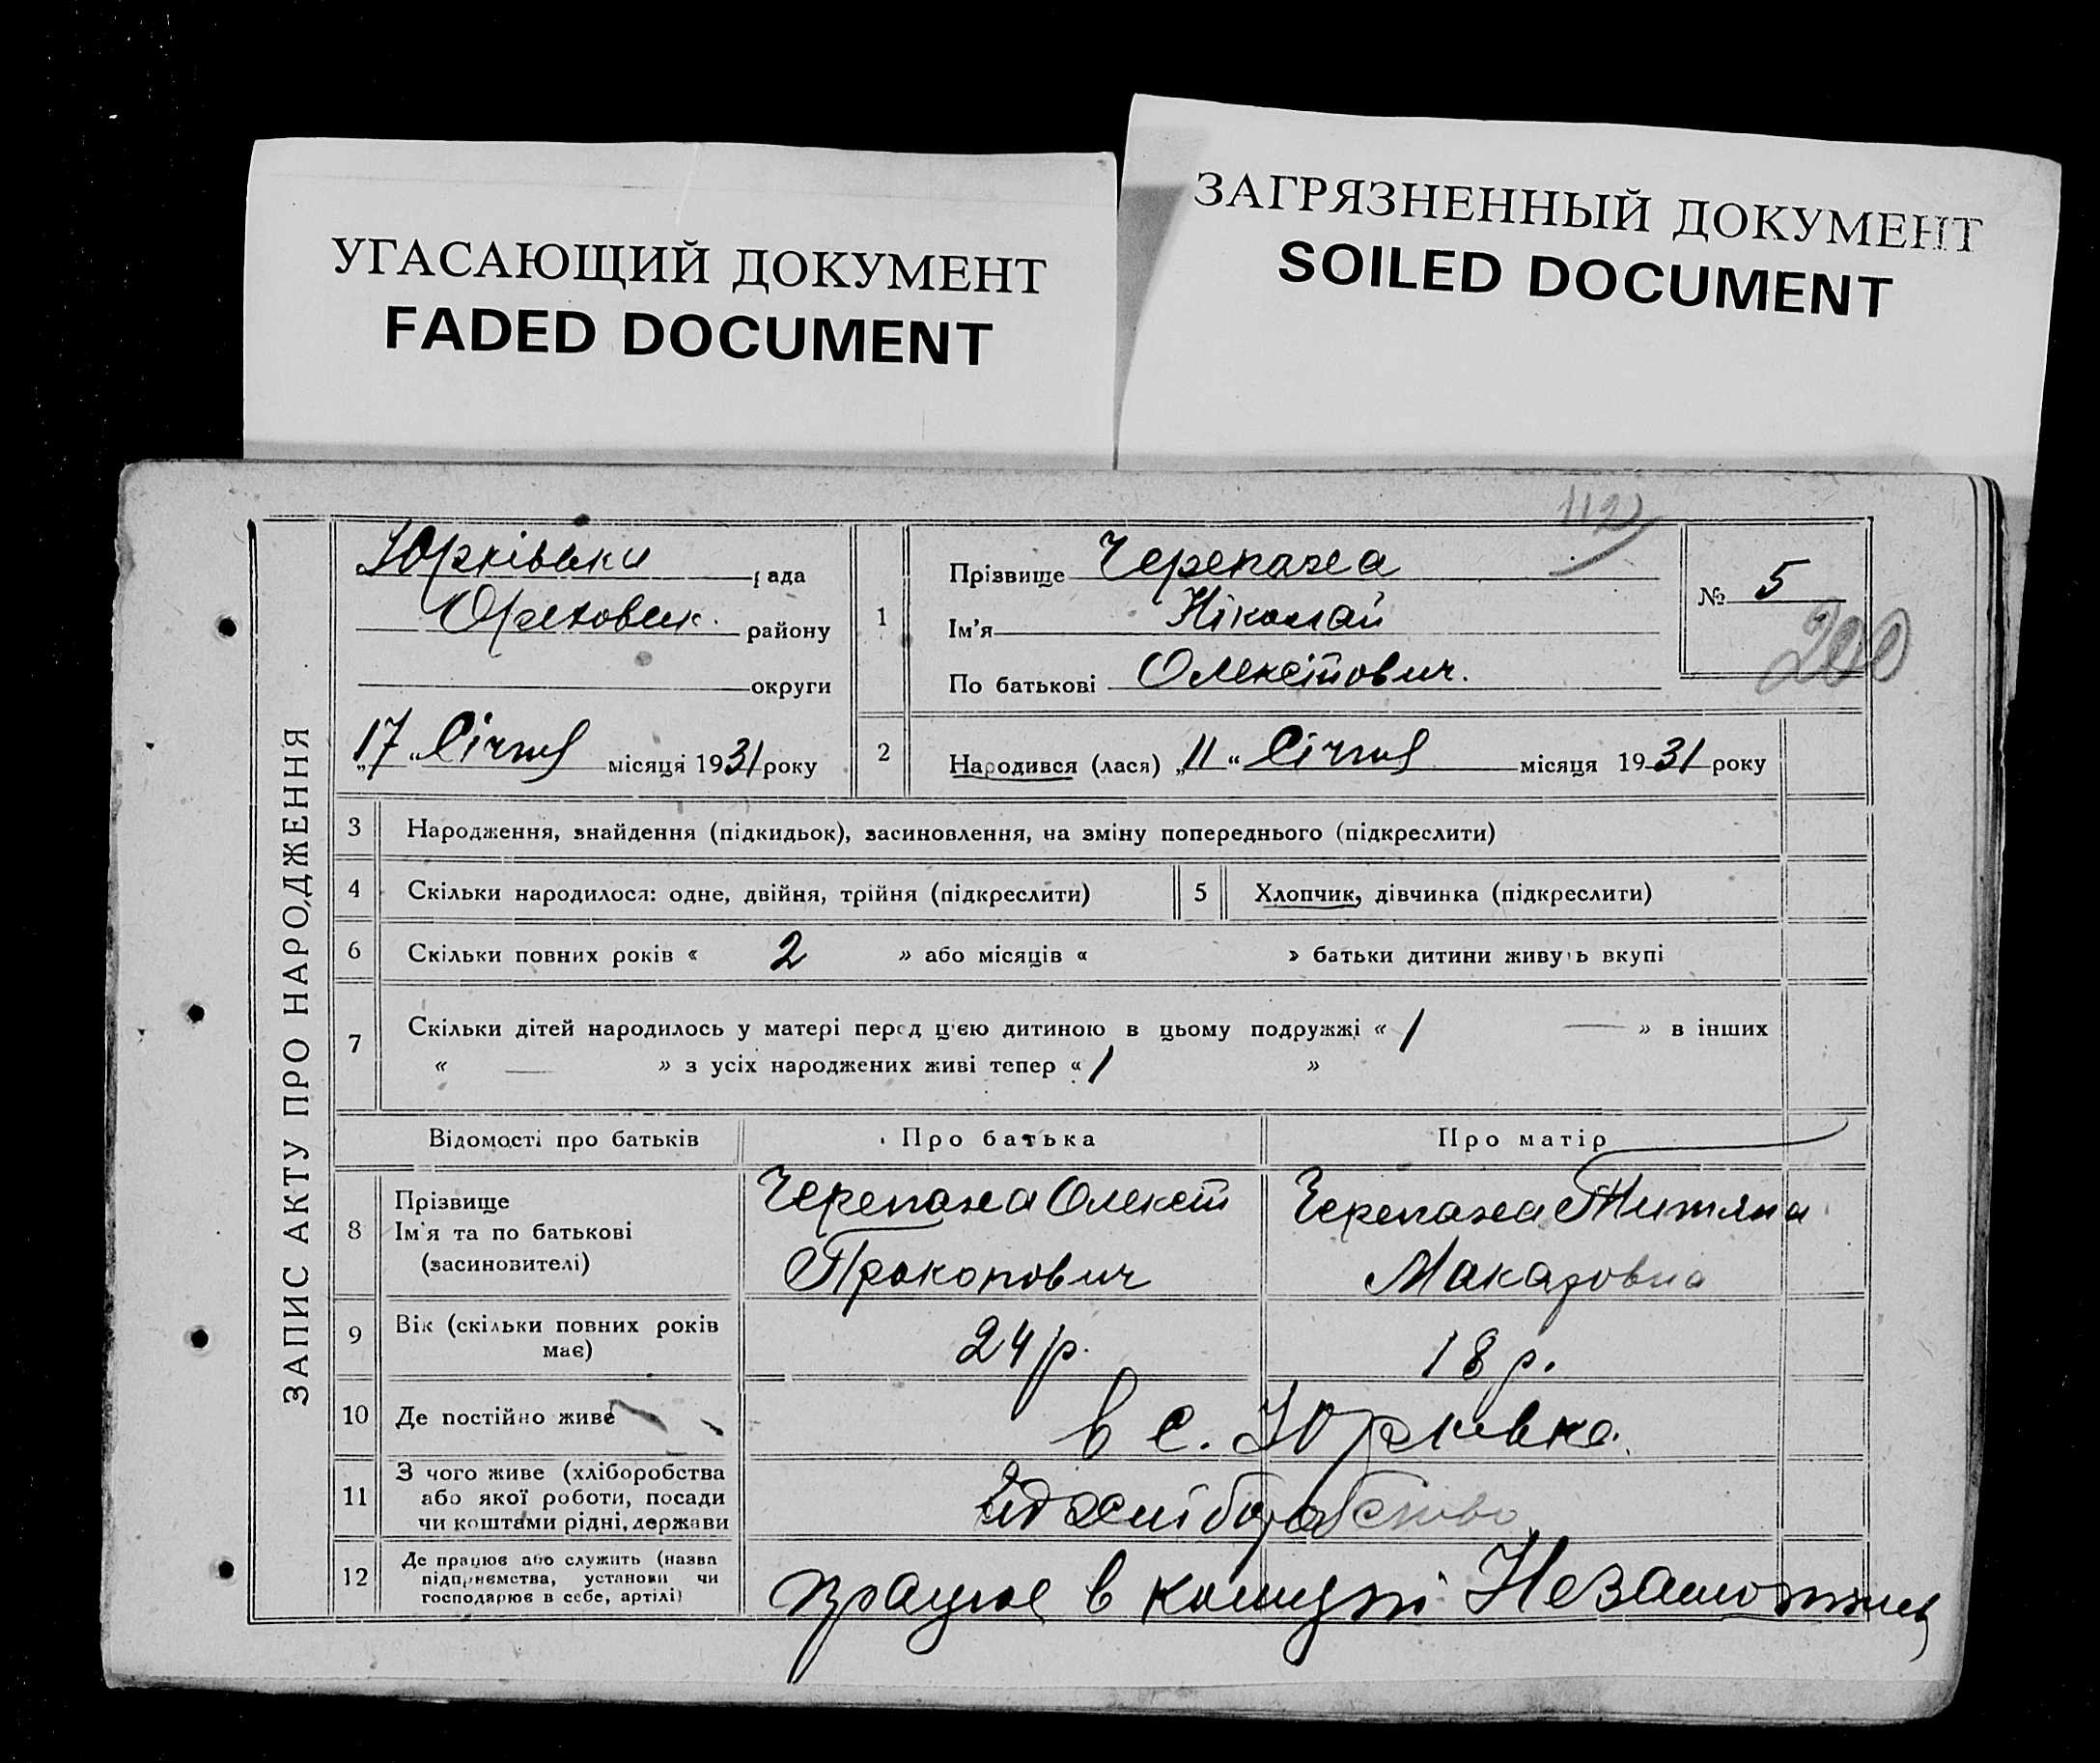 УГАСАЮЩИЙ ДОКУМЕНТ
FADED DOCUMENT
ЗАГРЯЗНЕННЫЙ ДОКУМЕНТ
SOILED DOCUMENT
112
ЗАПИС АКТУ ПРО НАРОДЖЕННЯ
Юрківськи рада
району
округи
„17“ Січня місяця 1931 року
1
Прізвище Черепаха
Ім'я Ніколай
По батькові
№ 5
200
2 Народився (лася) „11“ Січня місяця 1931 року
3 Народження, знайдення (підкидьок), засиновлення, на зміну попереднього (підкреслити)
4 Скільки народилося: одне, двійня, трійня (підкреслити) 5 Хлопчик, дівчинка (підкреслити)
6 Скільки повних років « 2 » або місяців « » батьки дитини живуть вкупі
7 Скільки дітей народилось у матері перед цією дитиною в цьому подружжі « 1 — » в інших
« — » з усіх народжених живі тепер « 1 »
Відомості про батьків Про батька Про матір
8 Прізвище
Ім'я та по батькові
(засиновителі)
Черепаха Олексій
Прокопович
Черепаха
Макаровна
9 Вік (скільки повних років
має)
24 р. 18 р.
10 Де постійно живе в с. Юрківка.
11 З чого живе (хліборобства
або якої роботи, посади
чи коштами рідні, держави
хліборобство
12 Де працює або служить (назва
підприємства, установи чи
господарює в себе, артілі)
працює в комуні